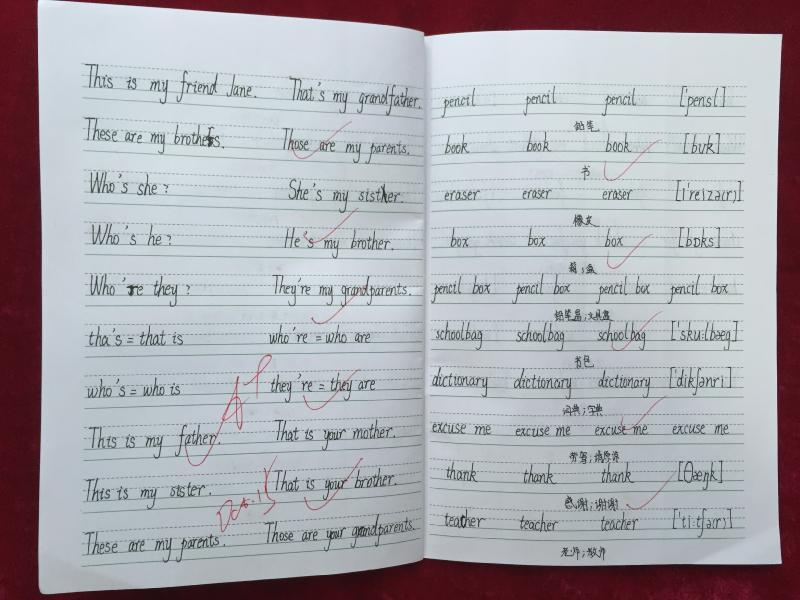 This is my friend Jane. That's my grandfather.
These are my brothers. Those are my parents.
Who's she? She's my sister.
Who's he? He's my brother.
Who're they? They're my grandparents.
tha's = that is who're = who are
who's = who is they're = they are
This is my father. That is your mother.
This is my sister. That is your brother.
These are my parents. Those are your grandparents.
A+
Oct.15
pencil pencil pencil ['pensl]
铅笔
book book book [bʊk]
书
eraser eraser eraser [i'reizə(r)]
橡皮
box box box [bɒks]
箱;盒
pencil box pencil box pencil box pencil box
铅笔盒;文具盒
schoolbag schoolbag schoolbag ['sku:lbæg]
书包
dictionary dictionary dictionary ['dikʃənri]
词典;字典
excuse me excuse me excuse me excuse me
劳驾;请原谅
thank thank thank [θæŋk]
感谢;谢谢
teacher teacher teacher ['ti:tʃə(r)]
老师;教师